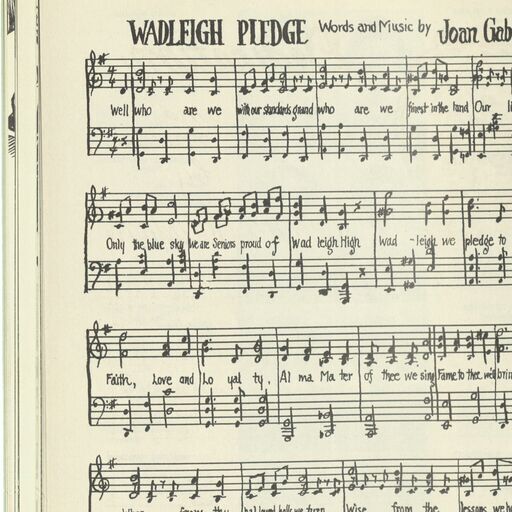 WADLEIGH PLEDGE Words and Music by Joan Gab
Well who are we with our standards grand who are we finest in the land Our li
Only the blue sky We are Seniors proud of Wad leigh High wad - leigh we pledge to
Faith, Love and Lo yal ty, Al ma Ma ter of thee we sing Fame to thee we'll brin
Wise from the lessons we